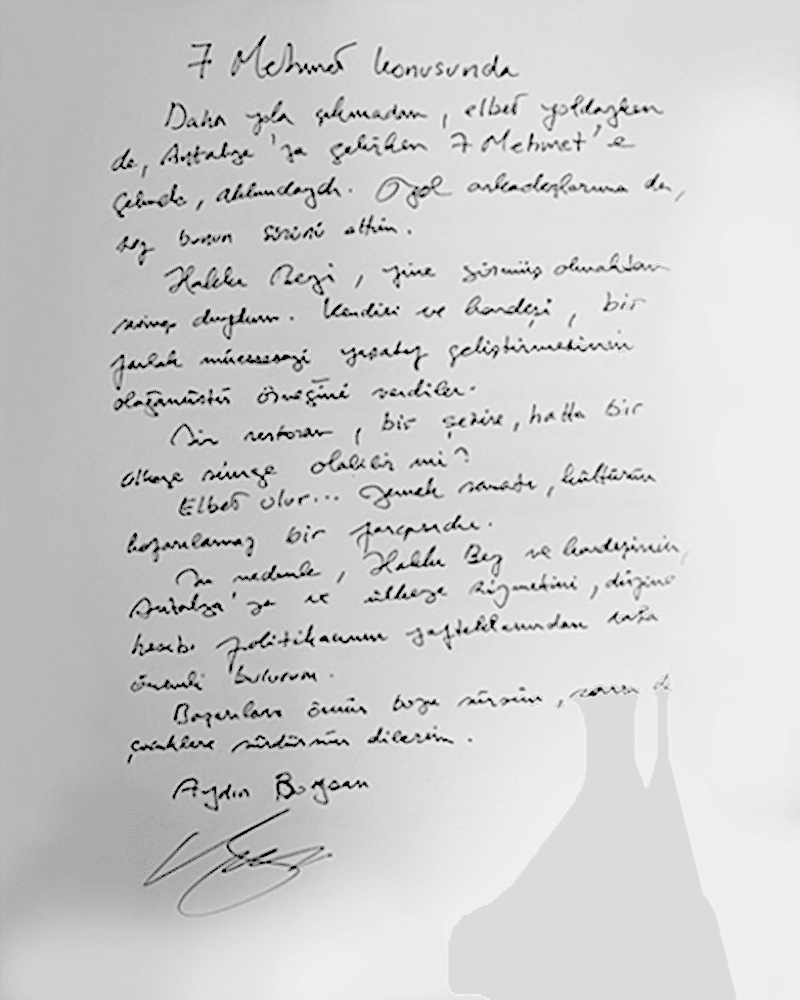 7 Mehmet konusunda
Daha yola çıkmadan, elbet yoldayken
de, Antalya'ya gelirken 7 Mehmet'e
gelmek, aklımdaydı. Özel arkadaşlarıma da,
hep bunun sözünü ettim.
Hakkı Beyi, yine görmüş olmaktan
sevinç duydum. Kendisi ve kardeşi, bir
parlak müesseseyi yaşatıp geliştirmesinin
olağanüstü örneğini verdiler.
Bir restoran, bir şehire, hatta bir
ülkeye simge olabilir mi?
Elbet olur... Yemek sanatı, kültürün
koparılamaz bir parçasıdır.
Bu nedenle, Hakkı Bey ve kardeşinin,
Antalya'ya ve ülkeye hizmetini, düzine
hesabı politikacının yaptıklarından daha
önemli bulurum.
Başarıları ömür boyu sürsün, sonra da
çocukları sürdürsün dilerim.
Aydın Boysan